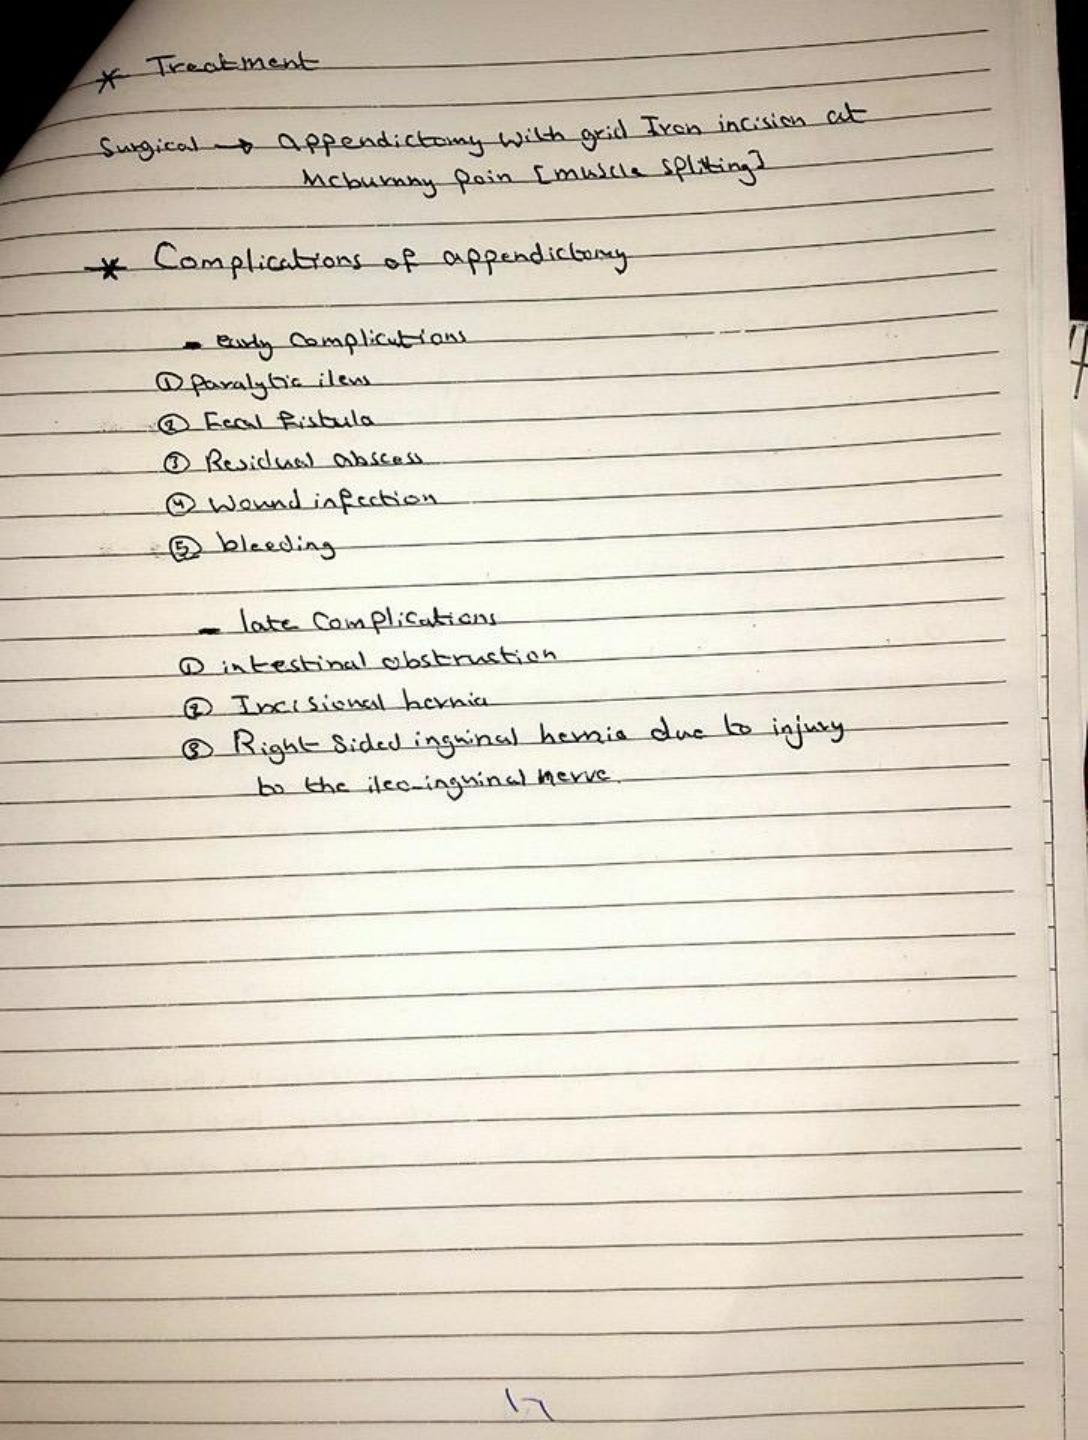 * Treatment
Surgical → appendictomy with grid Iron incision at
Mcburnny Poin [muscle spliting]
* Complications of appendictomy
- early complications
① paralytic ileus
② Fecal fistula
③ Residual abscess
④ Wound infection
⑤ bleeding
- late Complications
① intestinal obstruction
② Incisional hernia
③ Right Sided inguinal hernia due to injury
to the ileo-inguinal nerve.